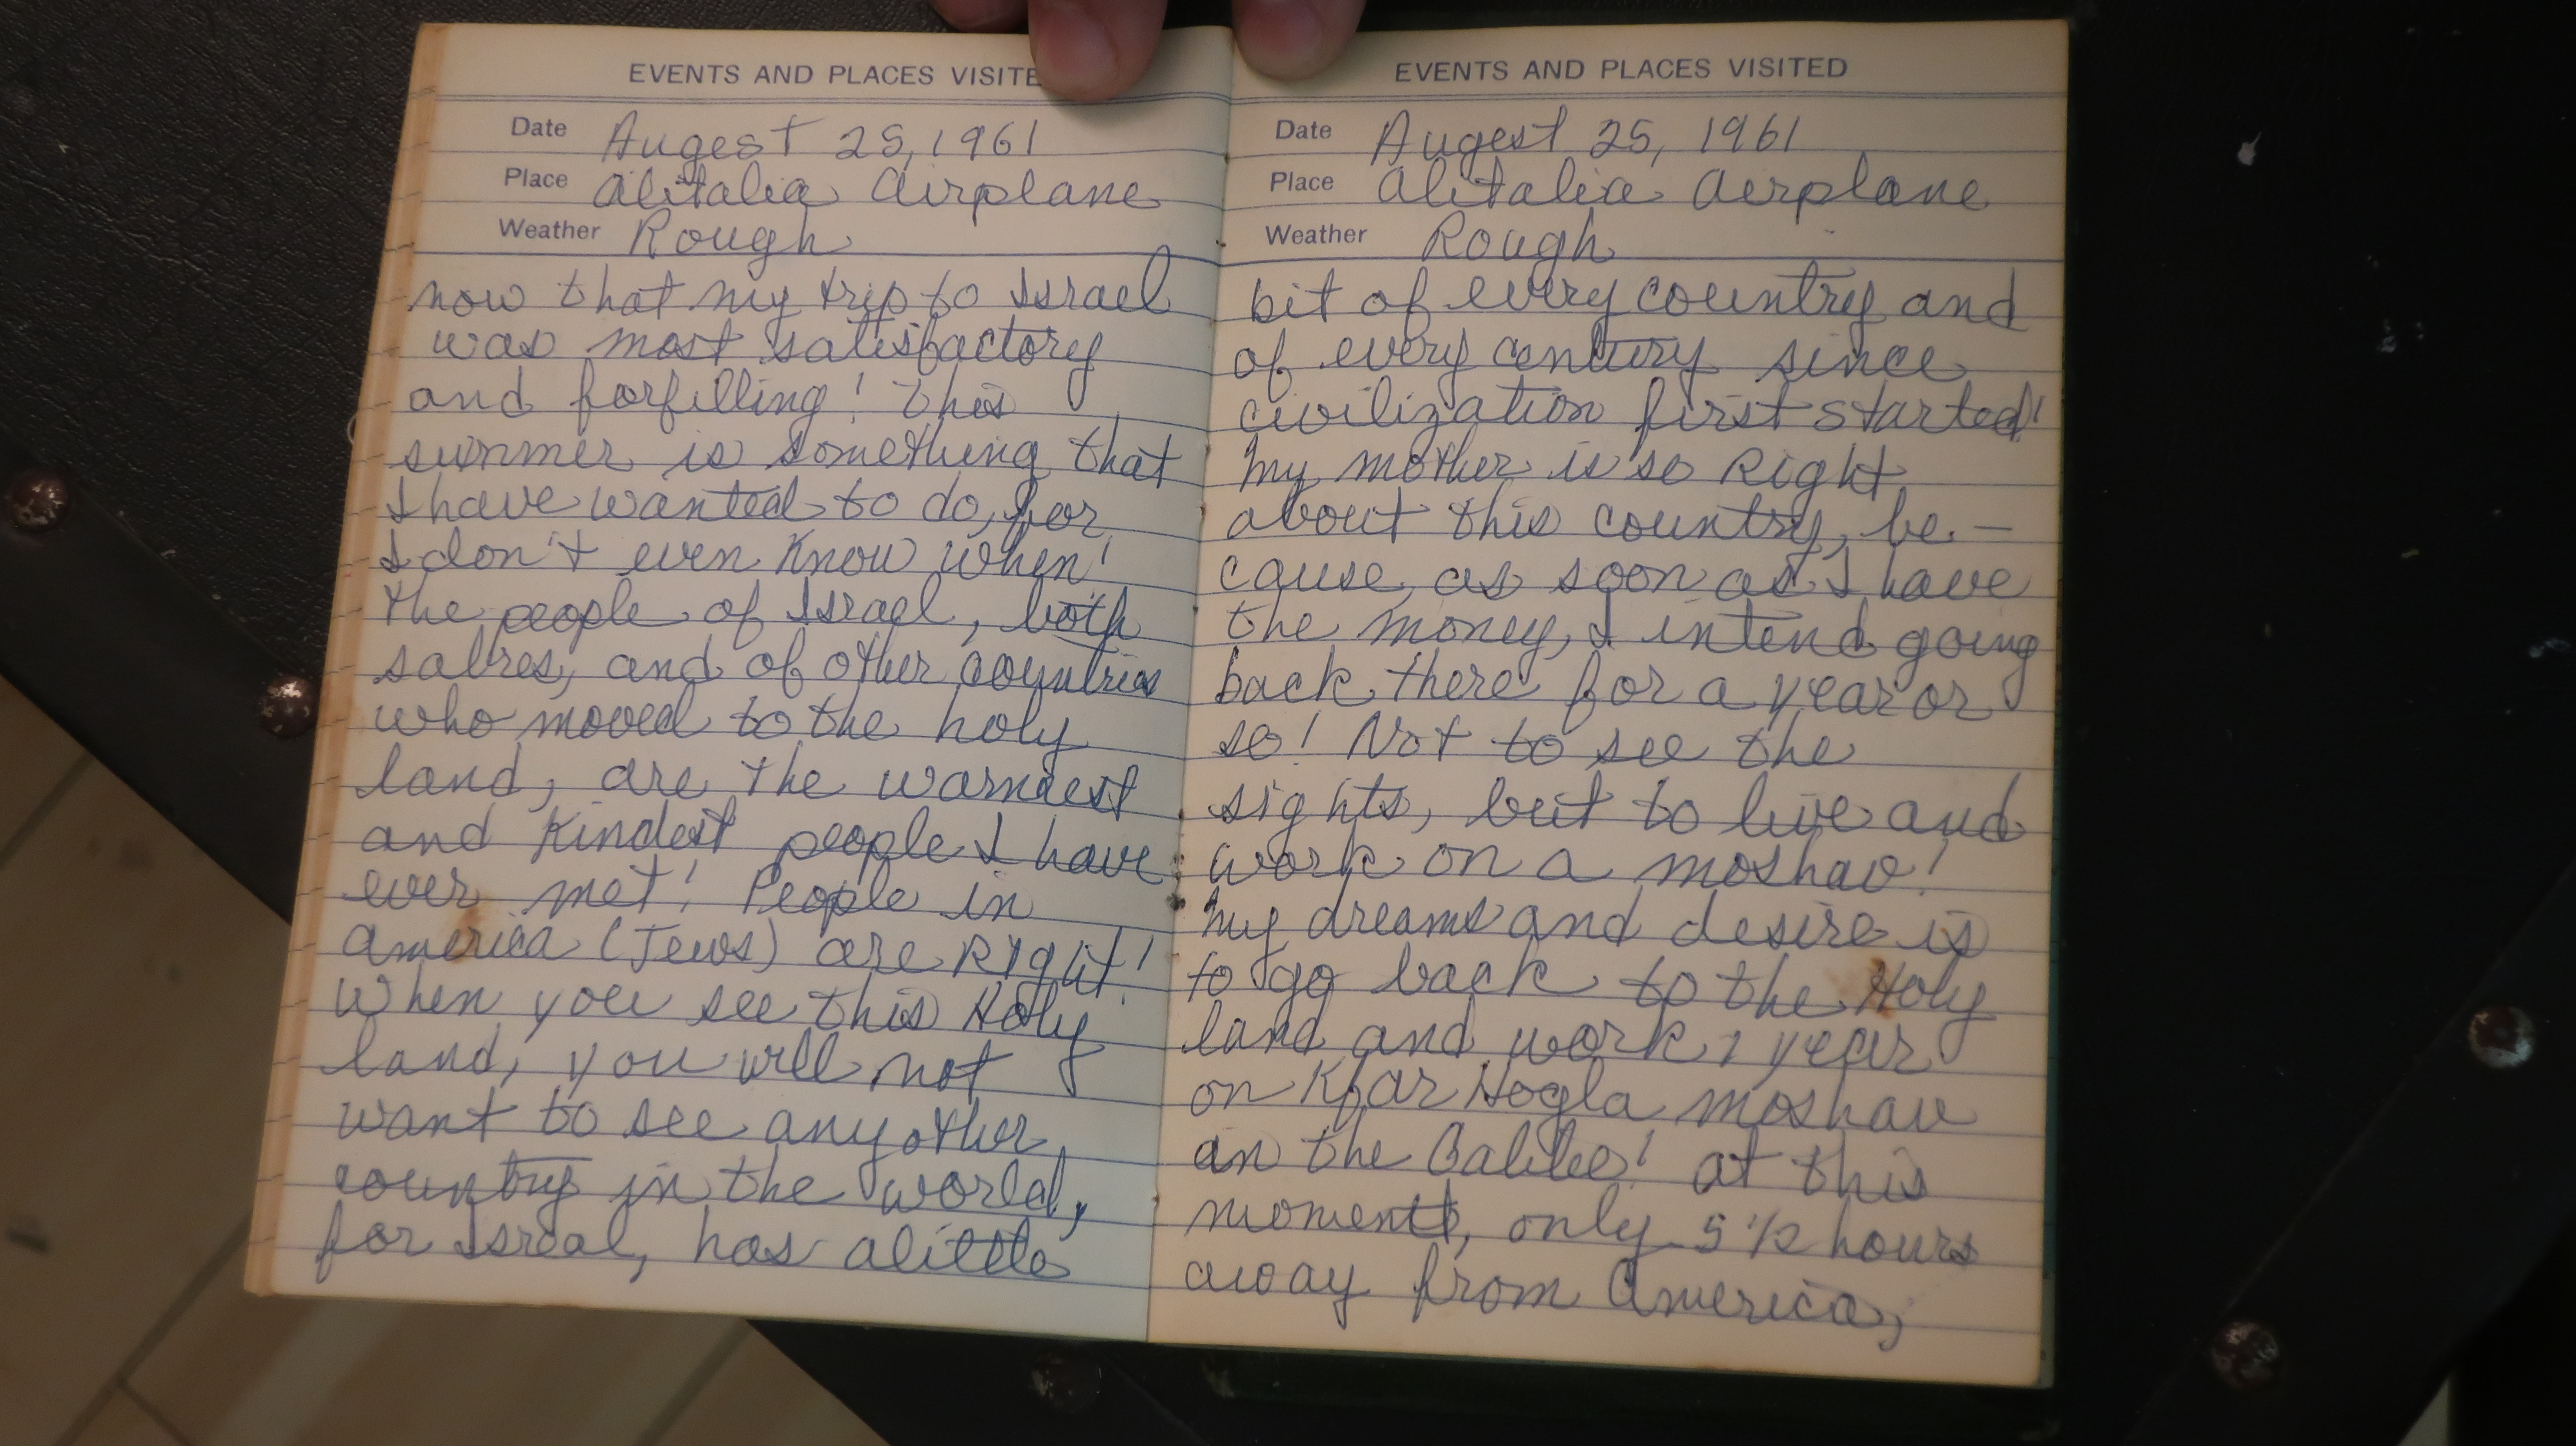 EVENTS AND PLACES VISITE
Date Augest 25, 1961
Place Alitalia Airplane
Weather Rough
now that my trip to Israel
was most satisfactory
and forfilling! This
summer is something that
I have wanted to do, for
I don't even know when!
The people of Israel, both
sabres, and of other countries
who moved to the holy
land, are the warmest
and kindest people I have
ever met! People in
America (Jews) are Right!
When you see this Holy
land, you will not
want to see any other
country in the world,
for Isreal, has alittle
EVENTS AND PLACES VISITED
Date Augest 25, 1961
Place Alitalia Aerplane
Weather Rough
bit of every country and
of every century since
civilization first started!
My mother is so Right
about this country, be-
cause, as soon as I have
the money, I intend going
back there for a year or
so! Not to see the
sights, but to live and
work on a moshav!
My dreams and desire is
to go back to the Holy
land and work 1 year
on Kfar Hogla moshav
in the Galilee! At this
moment, only 5 1/2 hours
away from America,